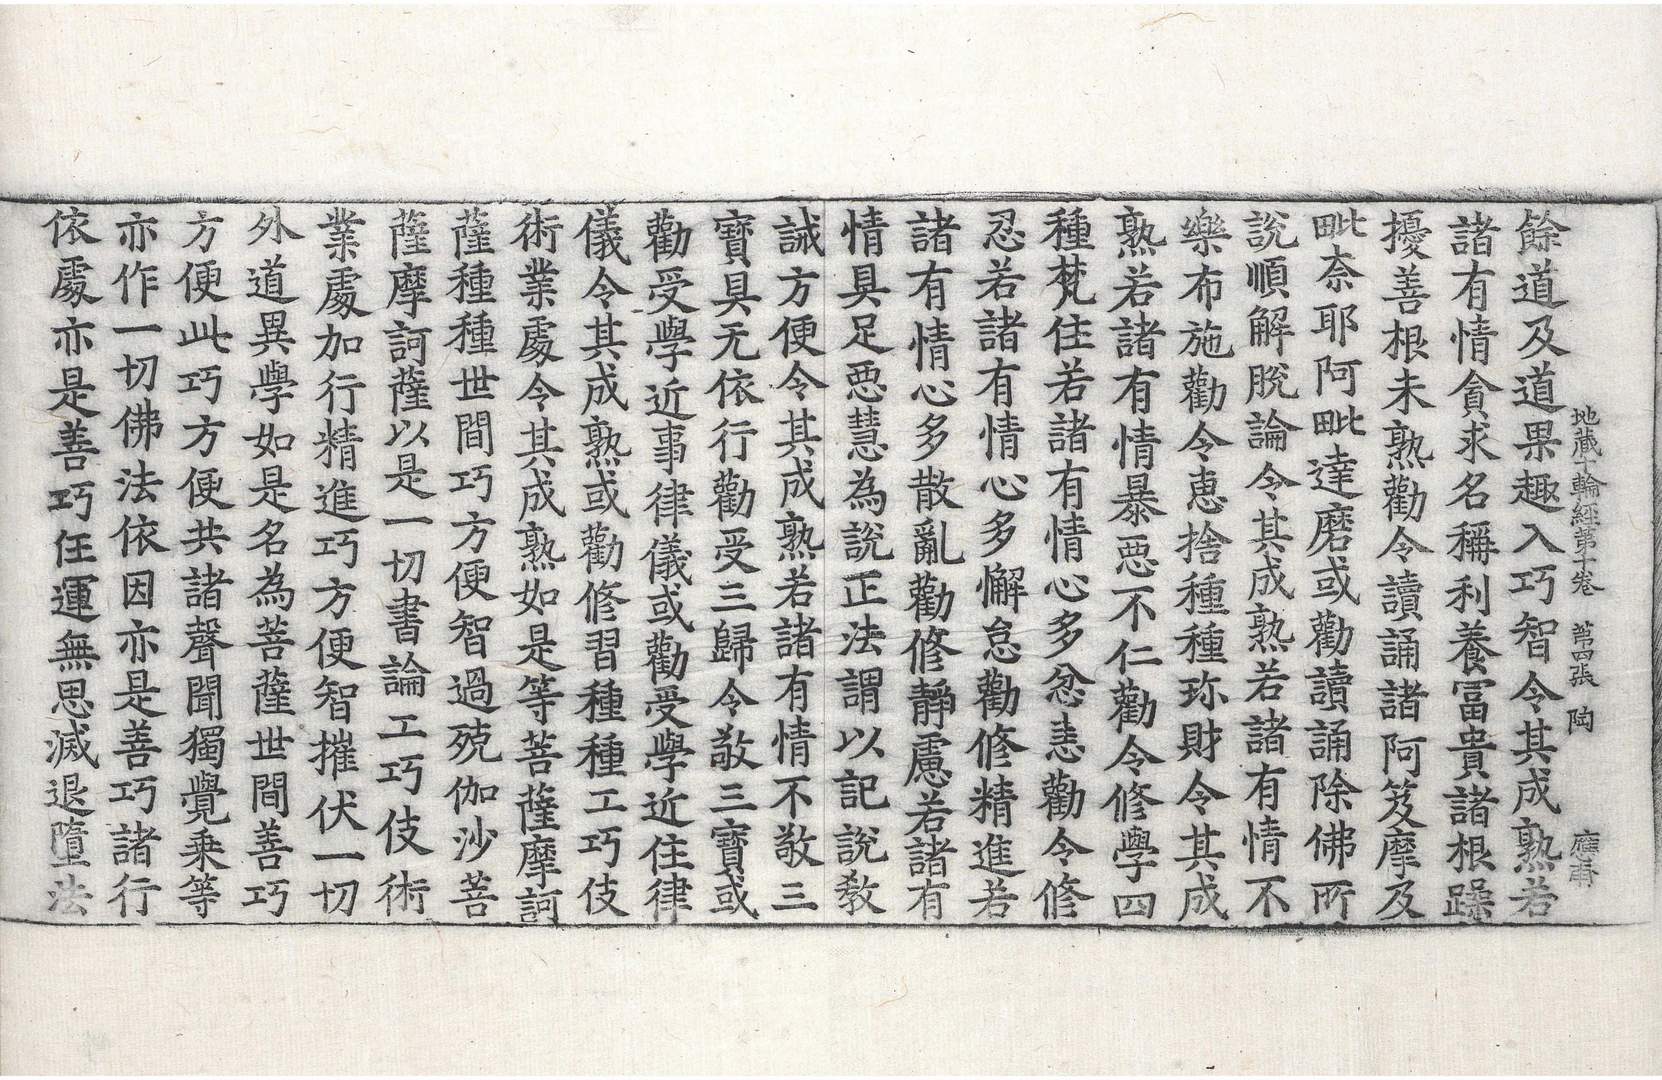 地藏十輪經第十卷 第四張 陶 應甫
餘道及道果趣入巧智令其成熟若
諸有情貪求名稱利養冨貴諸根躁
擾善根未熟勸令讀誦諸阿笈摩及
毗柰耶阿毗達磨或勸讀誦除佛所
說順解脫論令其成熟若諸有情不
樂布施勸令惠捨種種珎財令其成
熟若諸有情暴惡不仁勸令修學四
種梵住若諸有情心多忿恚勸令修
忍若諸有情心多懈怠勸修精進若
諸有情心多散亂勸修靜慮若諸有
情具足惡慧為說正法謂以記說教
誡方便令其成熟若諸有情不敬三
寶具无依行勸受三歸令敬三寶或
勸受學近事律儀或勸受學近住律
儀令其成熟或勸修習種種工巧伎
術業處令其成熟如是等菩薩摩訶
薩種種世間巧方便智過殑伽沙菩
薩摩訶薩以是一切書論工巧伎術
業處加行精進巧方便智摧伏一切
外道異學如是名為菩薩世間善巧
方便此巧方便共諸聲聞獨覺乘等
亦作一切佛法依因亦是善巧諸行
依處亦是善巧任運無思滅退墮法